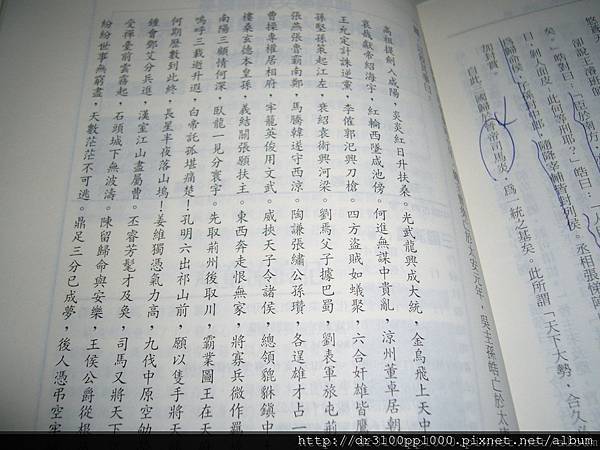 卻說王濬班師
矣。」皓對曰:「臣於南方
曰,剜人面皮,此何等刑耶?」皓曰:「人
為歸命侯,子孫封中郎,隨降宰輔皆封列侯。丞相張悌陣
加封賞。
自此三國歸於晉帝司馬炎,為一統之基矣。此所謂「天下大勢,合久必
亡於太安元年,與主孫皓亡於太
高祖提劍入咸陽,炎炎紅日升扶桑。光武龍興成大統,金烏飛上天中
哀哉獻帝紹海宇,紅輪西墜咸池傍。何進無謀中貴亂,涼州董卓居朝
王允定計誅逆黨,李傕郭汜興刀槍。四方盜賊如蟻聚,六合奸雄皆鷹
孫堅孫策起江左,袁紹袁術興河梁。劉焉父子據巴蜀,劉表軍旅屯荊
張燕張魯霸南鄭,馬騰韓遂守西涼。陶謙張繡公孫瓚,各逞雄才占一
曹操專權居相府,牢籠英俊用文武。威挾天子令諸侯,總領貔貅鎮中
樓桑玄德本皇孫,義結關張願扶主。東西奔走恨無家,將寡兵微作羈
南陽三顧情何深,臥龍一見分寰宇。先取荊州後取川,霸業圖王在天
嗚呼三載逝升遐,白帝託孤堪痛楚!孔明六出祁山前,願以隻手將天
何期歷數到此終,長星半夜落山塢!姜維獨憑氣力高,九伐中原空劬
鍾會鄧艾分兵進,漢室江山盡屬曹。丕睿芳髦才及奐,司馬又將天下
受禪臺前雲霧起,石頭城下無波濤。陳留歸命與安樂,王侯公爵從根
紛紛世事無窮盡,天數茫茫不可逃。鼎足三分已成夢,後人憑弔空牢
http://dr3100pp1000.pixnet.net/album